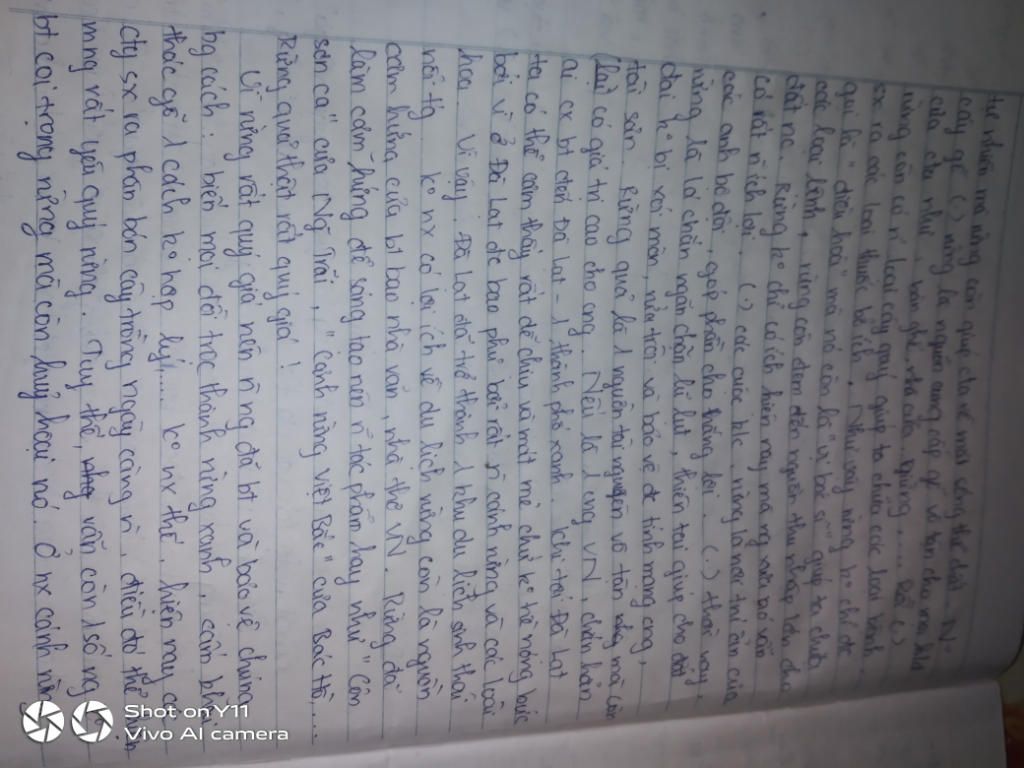 tự nhiên mà rừng còn giúp cta về mặt sống thế chất. ĐN-
cây gỗ (.) rừng là nguồn cung cấp gỗ vô tận cho mọi nhà
của cta như , bàn ghế, nhà cửa, thùng,.... Bởi (.)
rừng còn có n` loại cây quý giúp ta chữa các loại bệnh
sx ra các loại thuốc bổ ích. Như vậy rừng ko chỉ đc
gọi là " điều hoà " mà nó còn là " vị bác sĩ " giúp ta chữa
các loại bệnh, rừng còn đem đến nguồn thu nhập lớn cho
đất nc. Rừng ko chỉ có ích hiện nay mà ngày xưa nó vẫn
có rất n` ích lợi. (.) các cuộc k/c, rừng là nơi trú ẩn của
các anh bộ đội, góp phần cho thắng lợi. (.) thời nay,
rừng là lá chắn ngăn chặn lũ lụt, thiên tai giúp cho đất
đai ko bị xói mòn, rửa trôi và bảo vệ đc tính mạng cng,
tài sản. Rừng quả là 1 nguồn tài nguyên vô tận mà còn
có giá trị cao cho cng. Nếu là 1 cng VN, chắn hẳn
ai cx bt đến Đà Lạt - 1 thành phố xanh. Khi tới Đà Lạt
ta có thể cảm thấy rất dễ chịu và mát mẻ chứ ko hề nóng bức
bởi vì ở Đà Lạt đc bao phủ bởi rất n` cánh rừng và các loài
hoa. Vì vậy, Đà Lạt đã trở thành 1 khu du lịch sinh thái
nổi tg ko nx có lợi ích về du lịch rừng còn là nguồn
cảm hứng của bt bao nhà văn, nhà thơ VN. Rừng đã
làm cảm hứng để sáng tạo nên n~ tác phẩm hay như " Côn
sơn ca " của Ng Trãi, " cảnh rừng Việt Bắc " của Bác Hồ,...
Rừng quả thật rất quý giá !
Vì rừng rất quý giá nên n` ng đã bt và bảo vệ chúng
bg cách : biến mọi đồi trọc thành rừng xanh, cấm
thác gỗ 1 cách ko hợp lý,... ko nx thế, hiện nay các
cty sx ra phân bón cây trồng ngày càng n`, điều đó thể
mng rất yêu quý rừng. Tuy thế, vẫn còn 1 số ng
bt coi trọng rừng mà còn huỷ hoại nó. Ở nx cánh rừng
Shot on Y11
Vivo AI camera